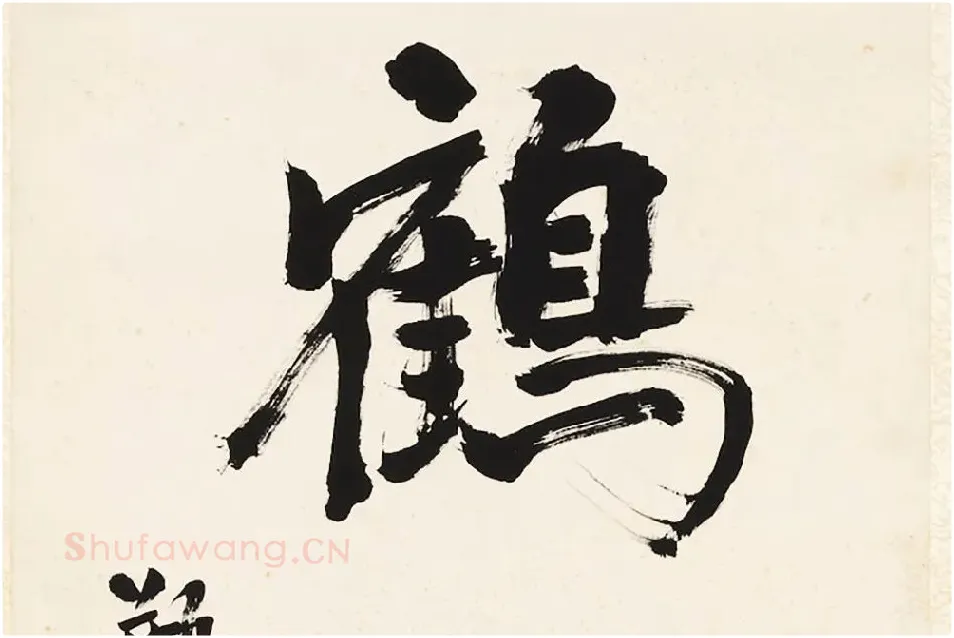 鶴
Shufawang.CN